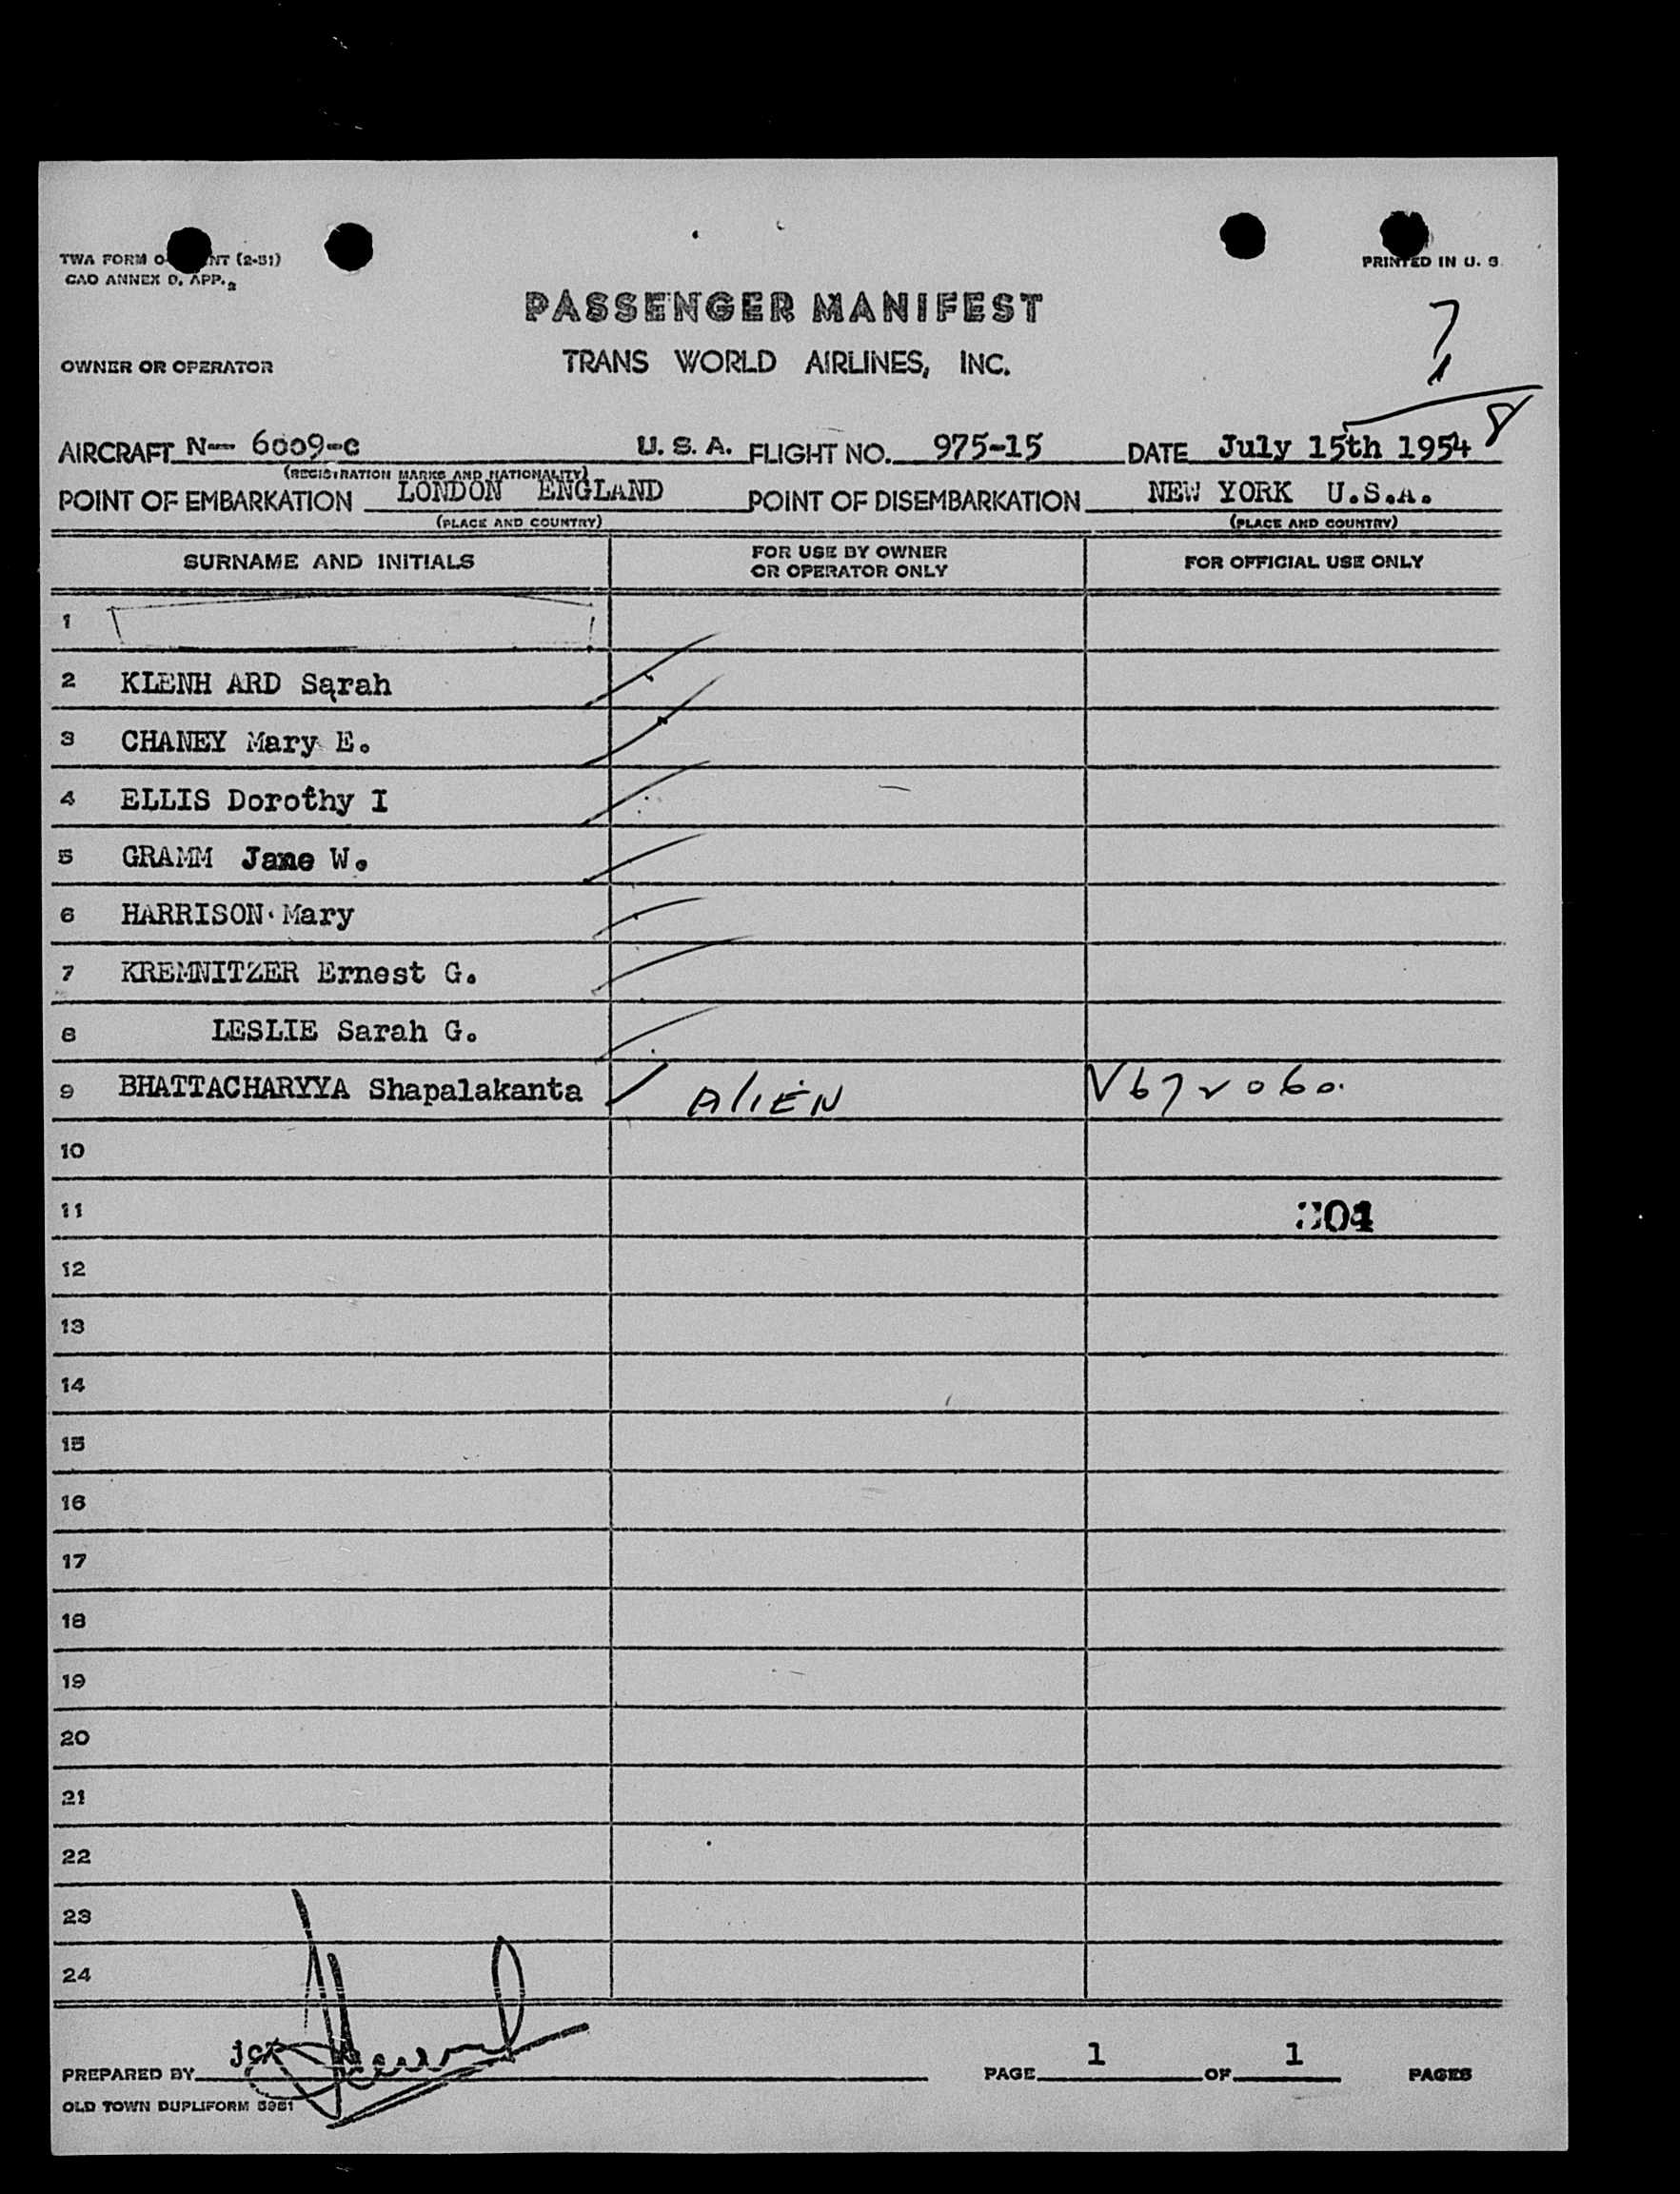 TWA FORM O- NT (2-51)
CAO ANNEX D. APP. 2
PRINTED IN U. S.
PASSENGER MANIFEST
OWNER OR OPERATOR TRANS WORLD AIRLINES, INC.
7
1
8
AIRCRAFT N-- 6009-c U. S. A. FLIGHT NO. 975-15 DATE July 15th 1954
(REGISTRATION MARKS AND NATIONALITY)
POINT OF EMBARKATION LONDON ENGLAND POINT OF DISEMBARKATION NEW YORK U.S.A.
(PLACE AND COUNTRY) (PLACE AND COUNTRY)
SURNAME AND INITIALS FOR USE BY OWNER OR OPERATOR ONLY FOR OFFICIAL USE ONLY
1
2 KLENH ARD Sarah
3 CHANEY Mary E.
4 ELLIS Dorothy I
5 GRAMM Jane W.
6 HARRISON Mary
7 KREMNITZER Ernest G.
8 LESLIE Sarah G.
9 BHATTACHARYYA Shapalakanta ALIEN V672060.
10
11 304
12
13
14
15
16
17
18
19
20
21
22
23
24
PREPARED BY jck PAGE 1 OF 1 PAGES
OLD TOWN DUPLIFORM 5951